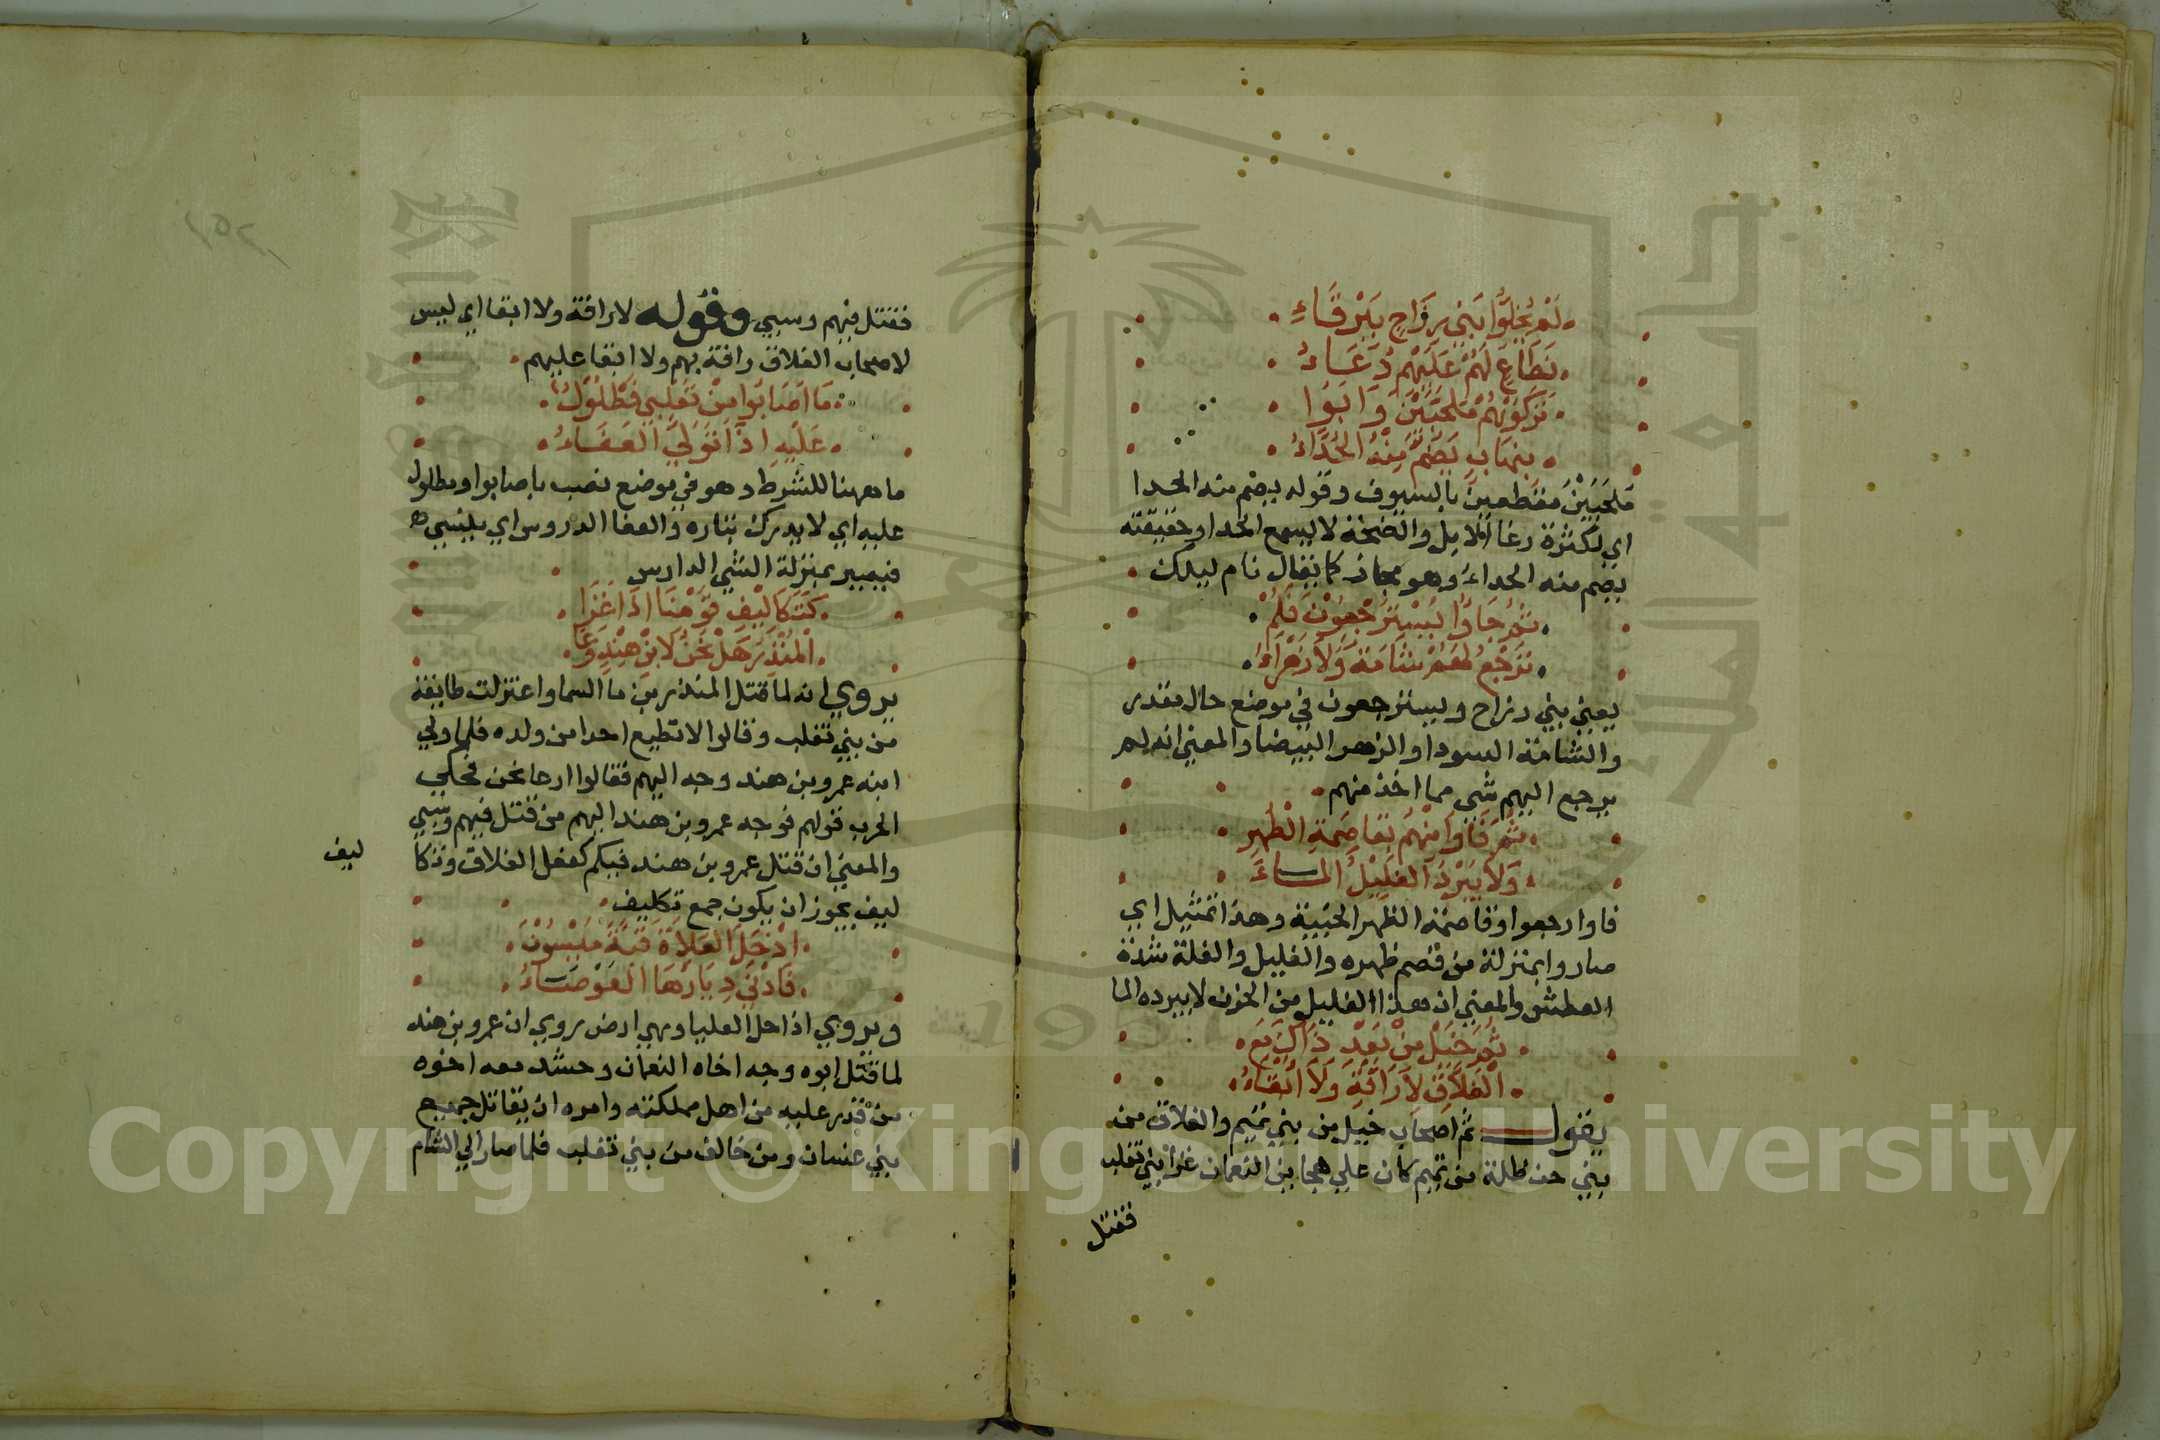 لَمْ يُحِلُّوا بَنِي رِزَاحٍ بِبَرْقَاءِ
نَطَاعٍ لَهُمْ عَلَيْهِمْ دُعَاءُ
تَرَكُوهُمْ مُلَحَّبِيْنَ وَآبُوا
بِنِهَابٍ يَصُمُّ مِنْهُ الحُدَاءُ
مُلَحَّبِيْنَ مقطعين بالسيوف وقوله يصم منه الحدا
اي لكثرة رغا الابل والضجة لا يسمع الحدا وحقيقته
يصم منه الحداء وهو مجاز كما يقال نام ليلك
ثُمَّ جَاؤُا يَسْتَرْجِعُوْنَ فَلَمْ
تَرْجِعْ لَهُمْ شَامَةٌ وَلاَ زَهْرَاءُ
يعني بني رزاح ويسترجعون في موضع حال مقدر
والشامة السودا والزهر البيضا والمعني انه لم
يرجع اليهم شي مما اخذ منهم
ثُمَّ فَاؤُا مِنْهُمْ بِقَاصِمَةِ الظَّهْرِ
وَلاَ يَبْرُدُ الغَلِيْلَ المَاءُ
فاوا رجعوا وقاصمة الظهر الخيبة وهذا تمثيل اي
صاروا بمنزلة من قصم ظهره والغليل والغلة شدة
العطش والمعني ان هذا الغليل من الحزن لا يبرده الما
ثُمَّ خَيْلٌ مِنْ بَعْدِ ذَاكَ مَعَ
الْغَلاَّقِ لاَ رَأْفَةٌ وَلاَ اِبْقَاءُ
يقول ثم اصحاب خيل من بني تميم والغلاق من
بني حنظلة من تميم كان علي هجاين النعمان غزا بني تغلب
فقتل
فقتل فيهم وسبي وقوله لا رافة ولا ابقا اي ليس
لاصحاب الغلاق رافة بهم ولا ابقا عليهم
مَا اَصَابُوا مِنْ تَغْلِبِيٍّ فَمَطْلُوْلٌ
عَلَيْهِ اِذَا تَوَلَّيَ العَفَاءُ
ما ههنا للشرط وهو في موضع نصب باصابوا ومطلول
عليه اي لا يدرك بثاره والعفا الدروس اي ينسي
فيصير بمنزلة الشي الدارس
كَتَكَالِيْفِ قَوْمِنَا اِذَا غَزَا
الْمُنْذِرُ هَلْ نَحْنُ لاِبْنِ هِنْدٍ رِعَا
يروي انه لما قتل المنذر بن ما السما واعتزلت طايفة
من بني تغلب وقالوا لا نطيع احدا من ولده فلما ولي
ابنه عمرو بن هند وجه اليهم فقالوا ارعا نحن فحكي
الحرب قولهم فوجه عمرو بن هند اليهم من قتل فيهم وسبي
والمعني ان قتل عمرو بن هند فيكم كفعل الغلاق وتكا
ليف
ليف يجوز ان يكون جمع تكليف
اِذْ حَلَّ العَلاَةَ قُبَّةَ مَيْسُوْنَ
فَاَدْنَي دِيَارِهَا العَوْصَاءُ
ويروي اذ احل العليا وهي ارض روي ان عمرو بن هند
لما قتل ابوه وجه اخاه النعمان وحشد معه اخوه
من قدر عليه من اهل مملكته وامره ان يقاتل جميع
بني غسان ومن خالف من بني تغلب فلما صار الي الشام
Copyright © King Saud University
1957